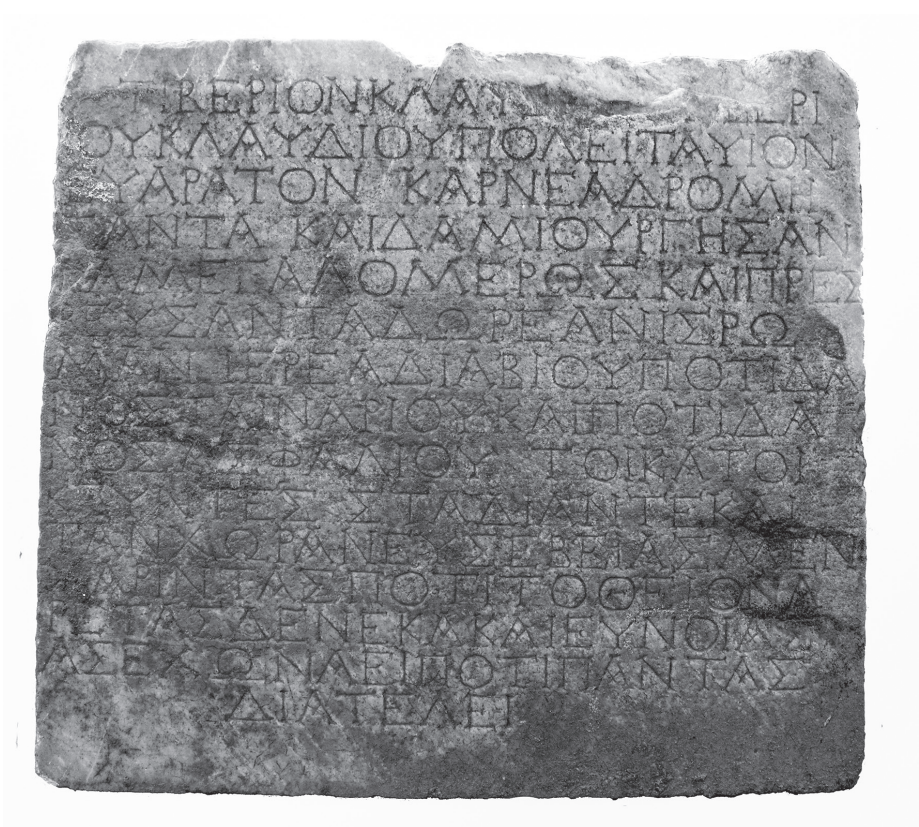 ΤΙΒΕΡΙΟΝΚΛΑΥ ΡΙ
ΟΥΚΛΑΥΔΙΟΥΠΟΛΕΙΤΑΥΙΟΝ
ΕΥΑΡΑΤΟΝ ΚΑΡΝΕΑΔΡΟΜΗ
ΣΑΝΤΑ ΚΑΙΔΑΜΙΟΥΡΓΗΣΑΝ
ΤΑΜΕΓΑΛΟΜΕΡΩΣ ΚΑΙΠΡΕΣ
ΒΕΥΣΑΝΤΑΔΩΡΕΑΝΙΣΡΩ
ΜΑΝ ΙΕΡΕΑΔΙΑΒΙΟΥΠΟΤΙΔΑ
ΝΟΣΤΑΙΝΑΡΙΟΥΚΑΙΠΟΤΙΔΑ
ΝΟΣΑΣΦΑΛΙΟΥ ΤΟΙΚΑΤΟΙ
ΚΕΥΝΤΕΣ ΣΤΑΔΙΑΝΤΕΚΑΙ
ΤΑΝΧΩΡΑΝΕΥΣΕΒΕΙΑΣΜΕΝ
ΧΑΡΙΝΤΑΣΠΟΤΙΤΟΘΕΙΟΝΑ
ΡΕΤΑΣΔΕΝΕΚΑΚΑΙΕΥΝΟΙΑΣ
ΑΣΕΧΩΝΑΕΙΠΟΤΙΠΑΝΤΑΣ
ΔΙΑΤΕΛΕΙ